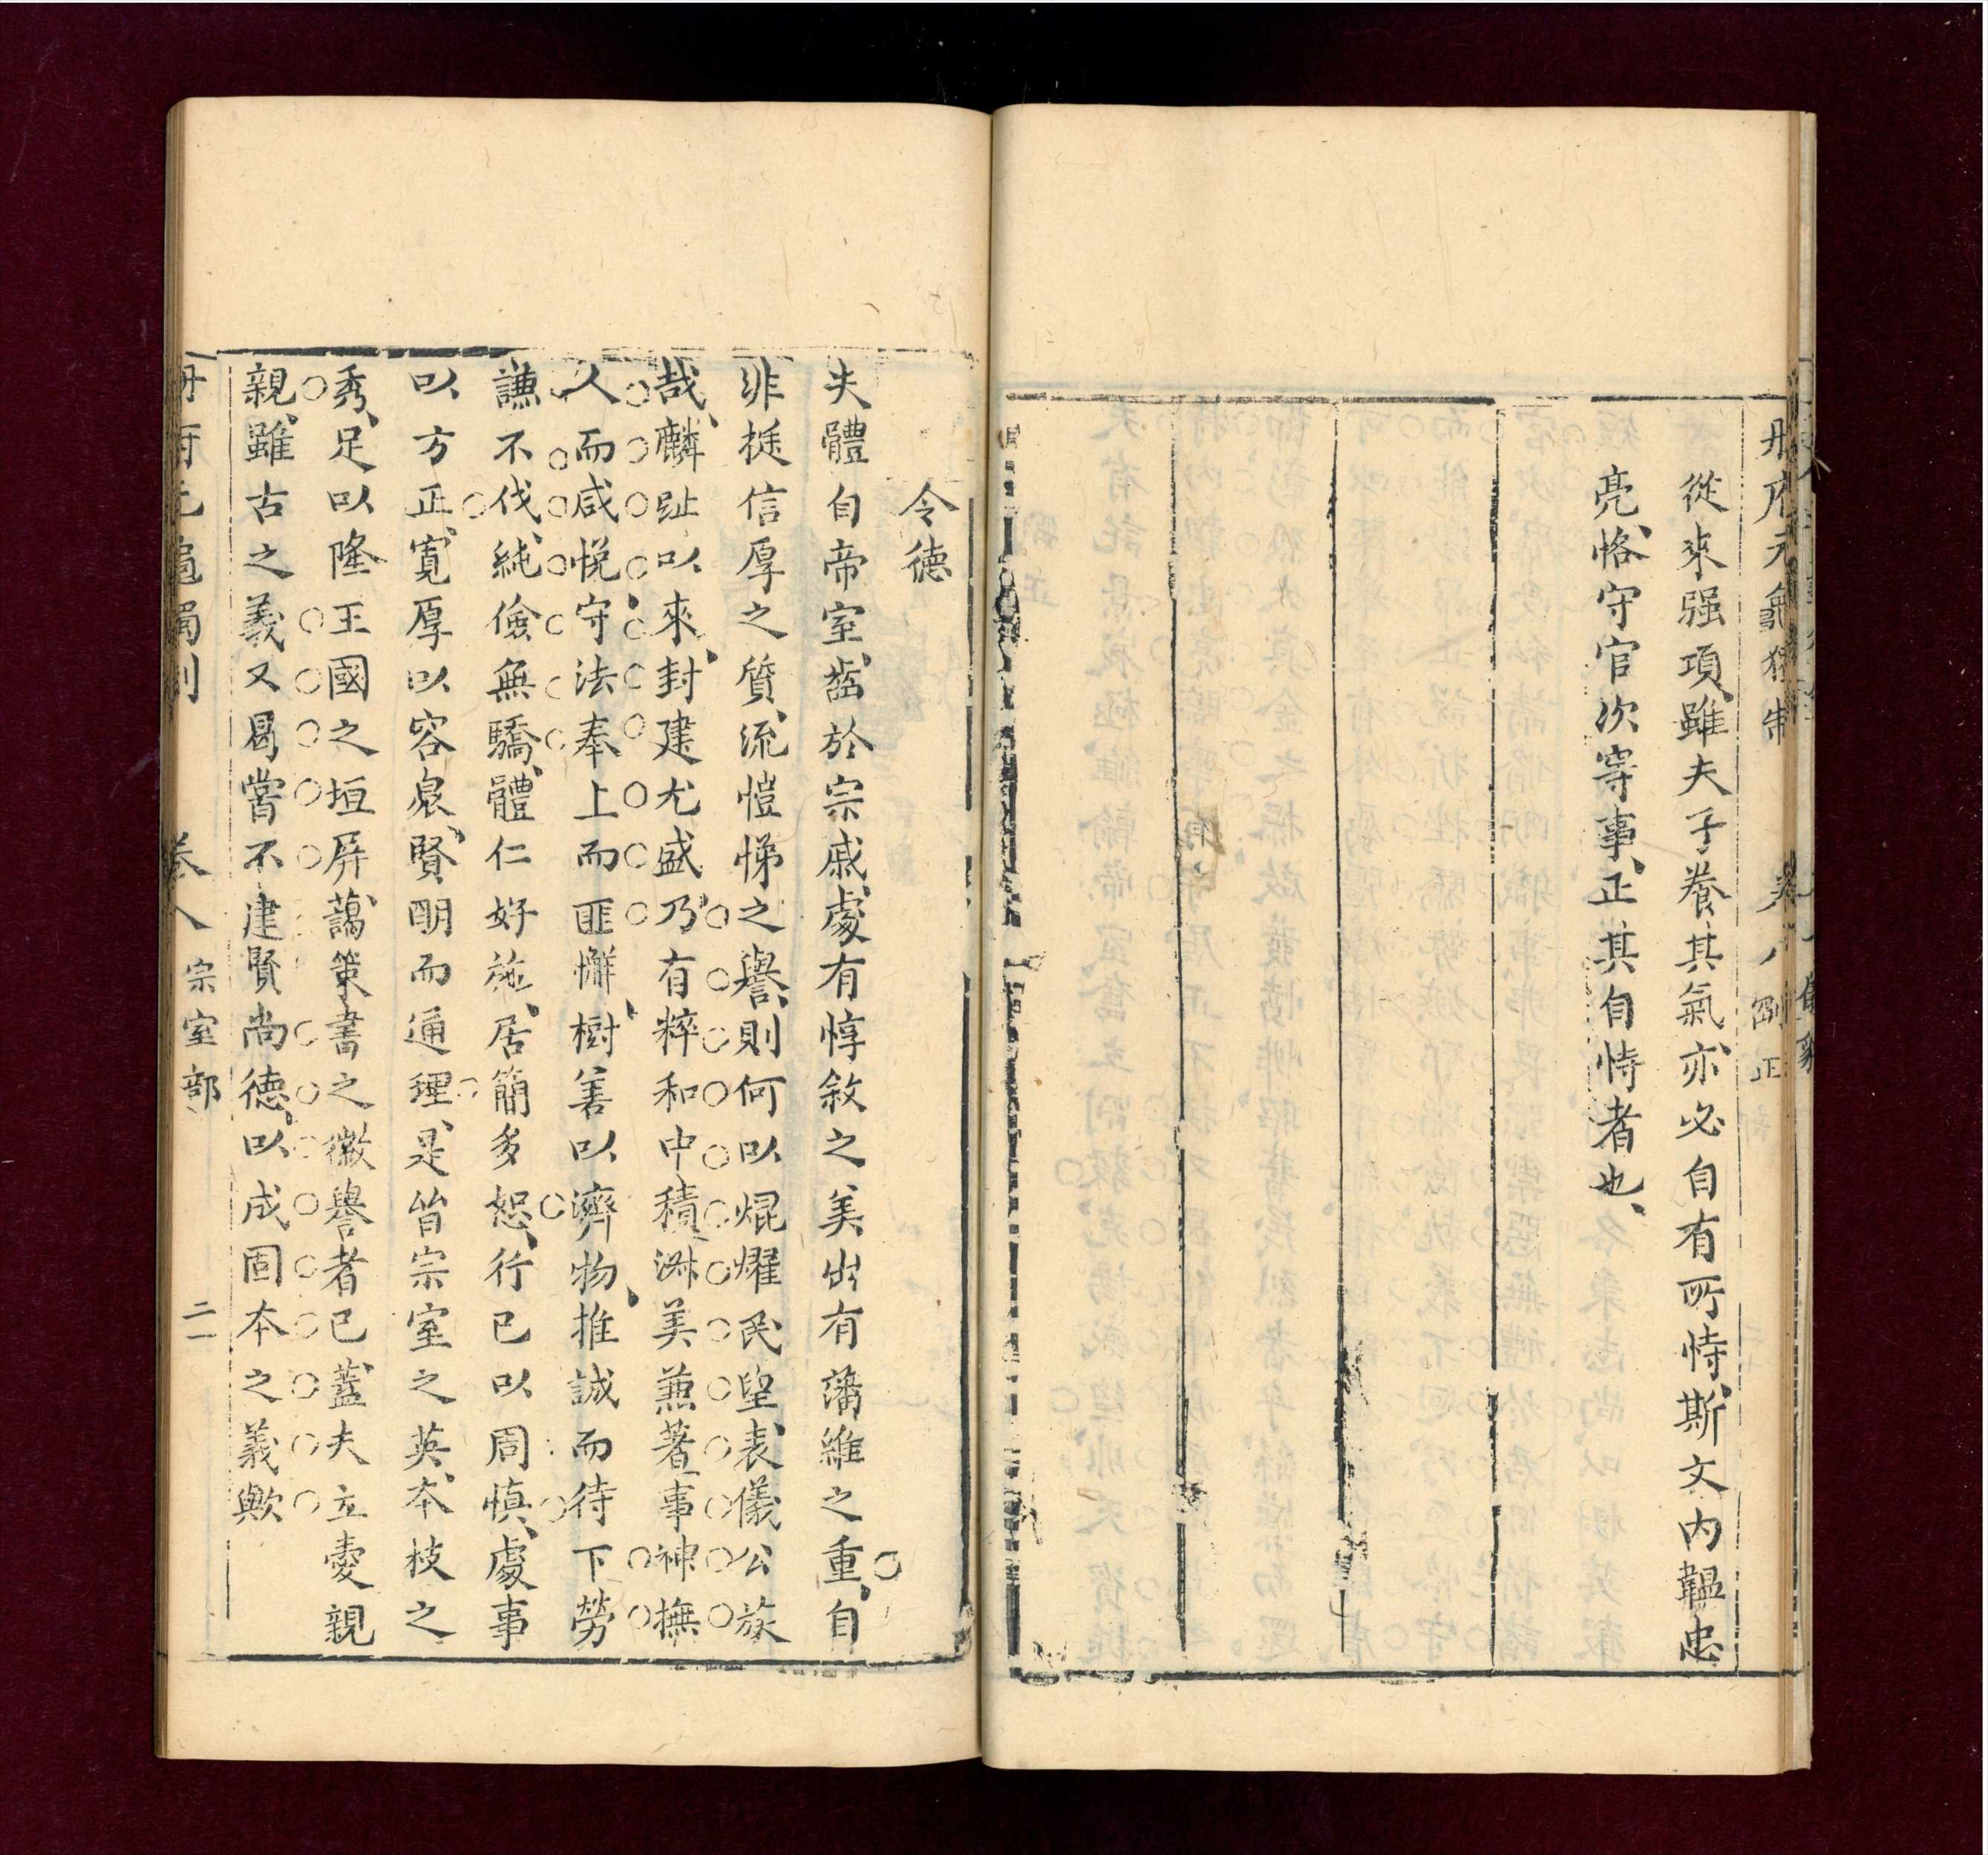 册府元龜獨制　卷八　剛正
從來强項、雖夫子養其氣、亦必自有所恃、斯文内韞忠
亮、恪守官次、寄事、正其自恃者也、
令德
夫體自帝室、齒於宗戚、處有惇敘之美、出有藩維之重、自
非挺信厚之質、流愷悌之譽、則何以焜燿民望、表儀公族
哉、麟趾以來、封建尤盛、乃有粹和中積、淋美兼著、事神撫
人而咸悅、守法奉上而匪懈、樹善以濟物、推誠而待下、勞
謙不伐、純儉無驕、體仁好施、居簡多恕、行已以周慎、處事
以方正、寬厚以容衆、賢明而通理、是皆宗室之英、本枝之
秀、足以隆王國之垣屏、藹策書之徽譽者已、蓋夫立愛親
親、雖古之義、又曷嘗不建賢尚德、以成固本之義歟
册府元龜獨制　卷八　宗室部　二一